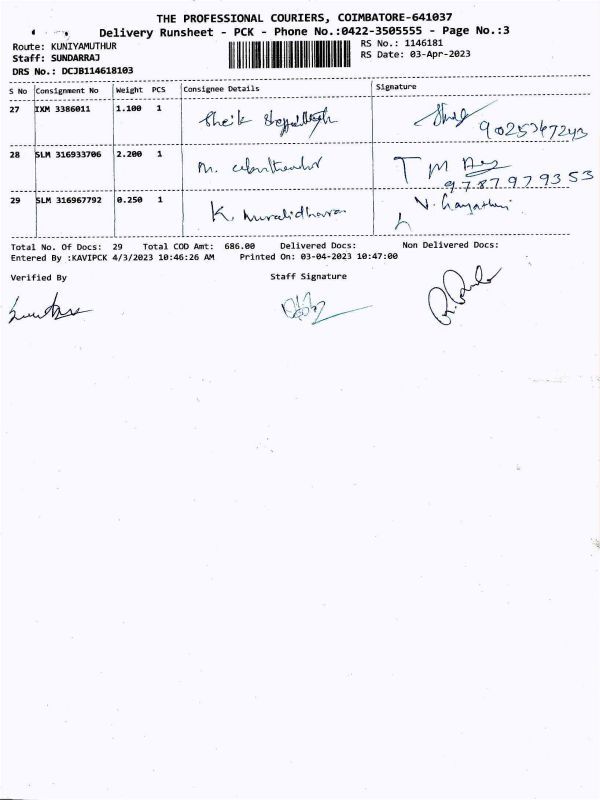 THE PROFESSIONAL COURIERS, COIMBATORE-641037
Delivery Runsheet - PCK - Phone No.:0422-3505555 - Page No.:3
Route: KUNIYAMUTHUR
RS No.: 1146181
Staff: SUNDARRAJ
RS Date: 03-Apr-2023
DRS No.: DCJB114618103
S No Consignment No Weight PCS Consignee Details Signature
27 IXM 3386011 1.100 1 Sheik
9025367243
28 SLM 316933706 2.200 1 M. T M
9787979353
29 SLM 316967792 0.250 1 K. Muralidharan V. Gayathri
Total No. Of Docs: 29 Total COD Amt: 686.00 Delivered Docs: Non Delivered Docs:
Entered By :KAVIPCK 4/3/2023 10:46:26 AM Printed On: 03-04-2023 10:47:00
Verified By Staff Signature